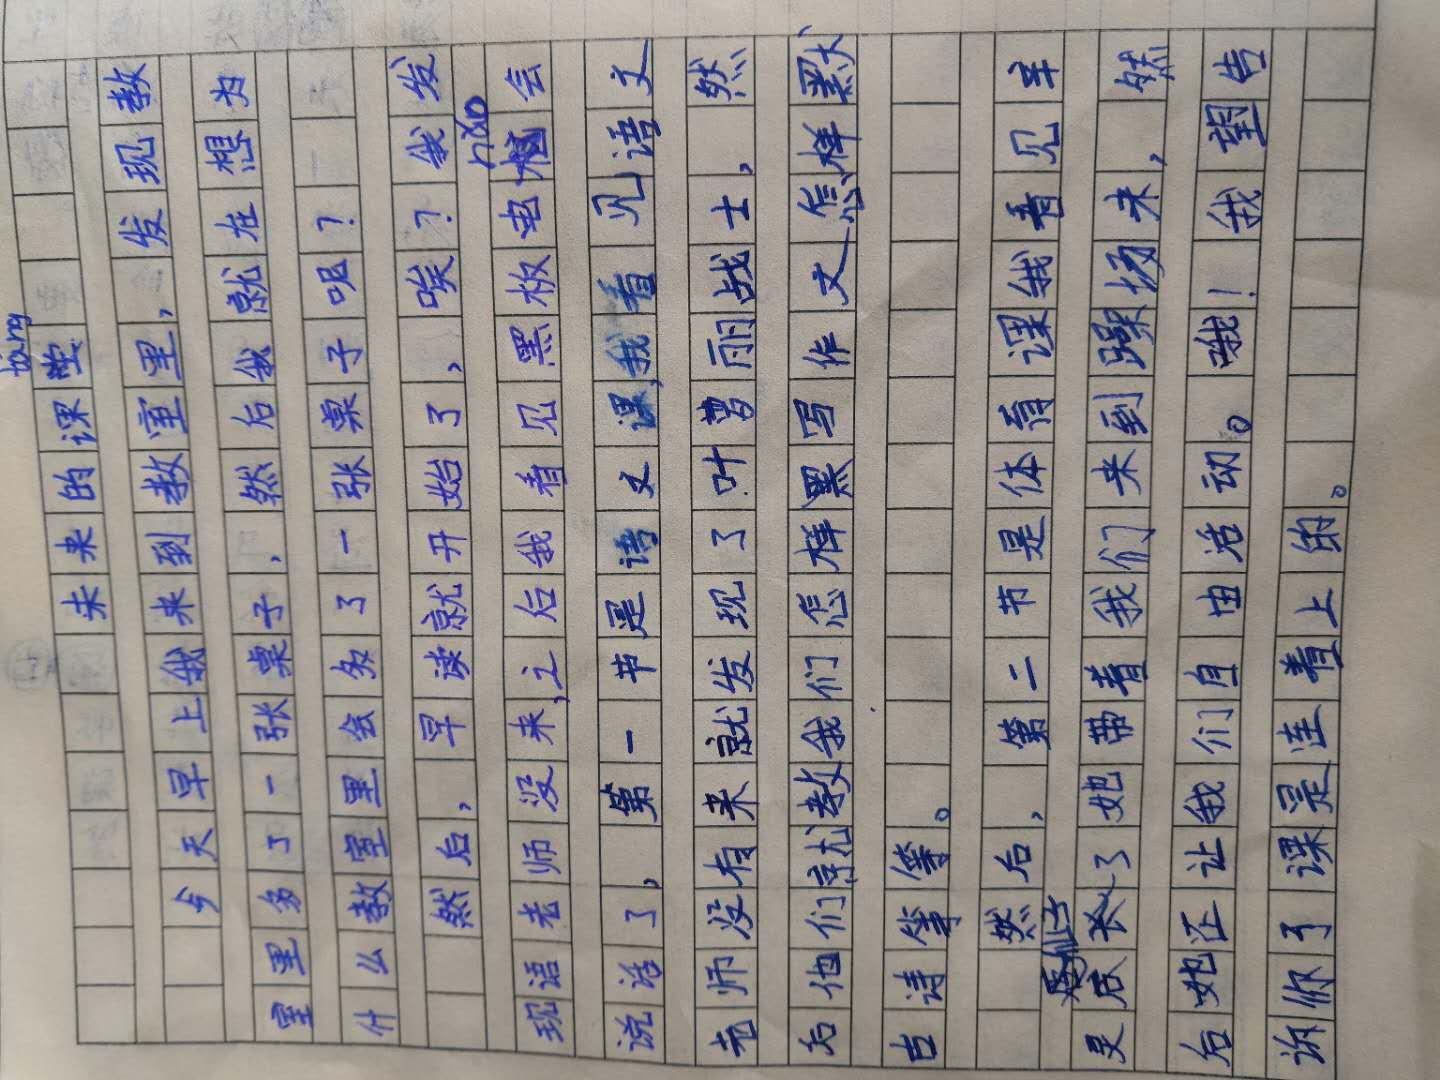 táng
未来的课堂
今天早上我来到教室里,发现教
室里多了一张桌子,然后我就在想为
什么教室里会多了一张桌子呢?
然后,早读就开始了,唉?我发
nǎo
现语老师没来,之后我看见黑板电脑会
说话了,第一节是语文课,我看见语文
老师没有来就发现了叶萝丽战士,然
后他们就教我们怎样黑写作文怎样默
古诗等等。
然后,第二节是体育课我看见
灵 了她带着我们来到躁场来,然
后她还让我们自由活动。哦!我 告
诉你了课是连着上的。